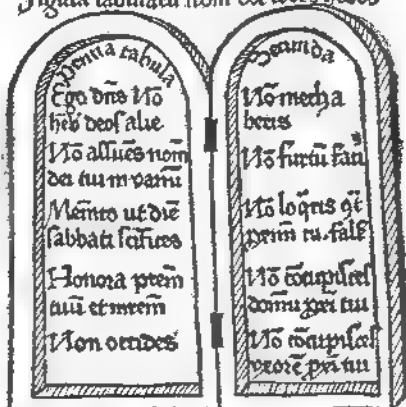 Prima tabula
Ego dñs Nõ
heb deos alie
Nõ assues nom̃
dei tui in vanũ
Mem̃to ut diẽ
sabbati sc̃ifices
Honora prem̃
tuũ et mrem̃
Non occides
Secunda
Nõ mecha
beris
Nõ furtũ faci
Nõ loq̃ris
fals
Nõ cõcupisces
domũ prxi tui
Nõ cõcupisces
uxorẽ prxi tui